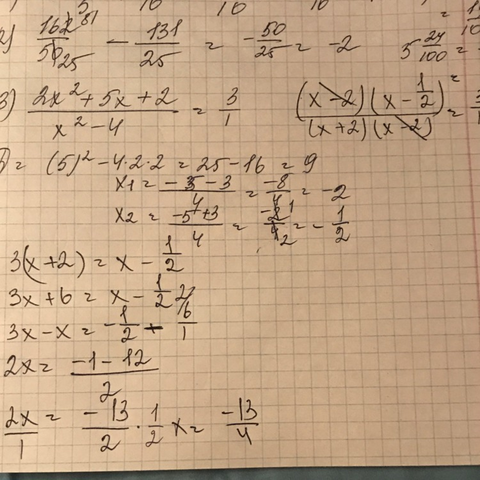 162 81 / 50 25 - 131 / 25 = -50 / 25 = -2
5 24/100 =
3) (2x² + 5x + 2) / (x² - 4) = 3/1
(x-2)(x-1/2) / (x+2)(x-2) = 3
= (5)² - 4·2·2 = 25 - 16 = 9
x1 = (-5-3)/4 = -8/4 = -2
x2 = (-5+3)/4 = -2 1/4 2 = -1/2
3(x+2) = x - 1/2
3x + 6 = x - 1/2
3x - x = -1/2 - 6/1
2x = (-1-12)/2
2x/1 = -13/2 · 1/2 x = -13/4